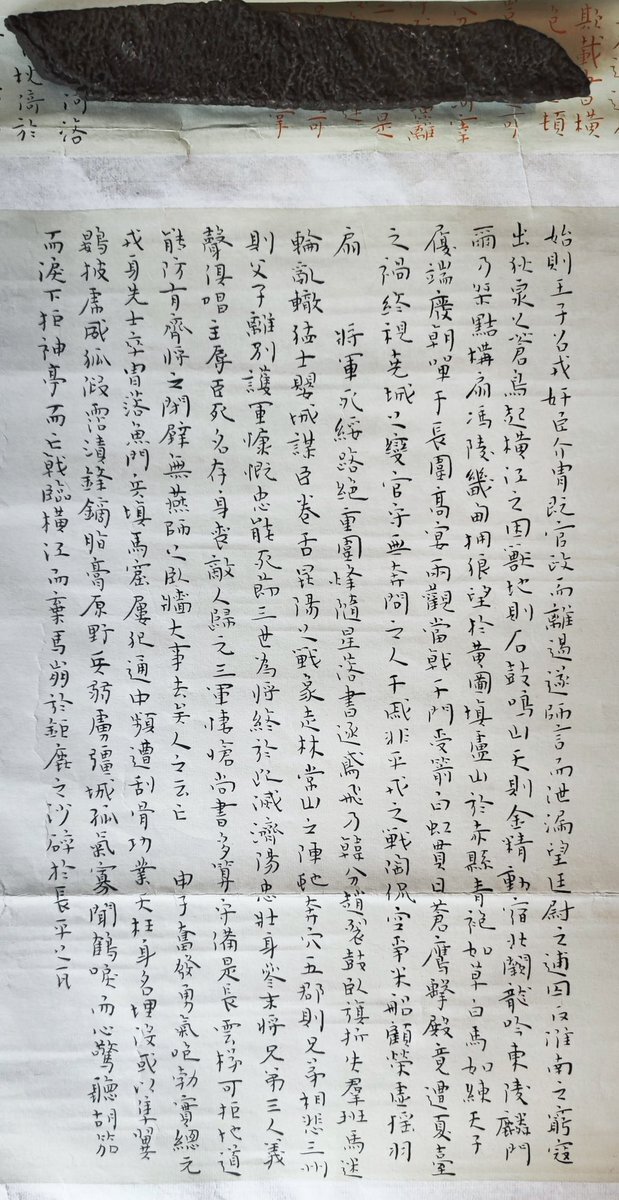 欺載書橫
河洛
始則王子召戎奸臣介胄既官政而離逷遂師言而泄漏望廷尉之逋囚反淮南之窮寇
出狄泉之蒼鳥起橫江之困獸地則石鼓鳴山天則金精動宿北闕龍吟東陵麟鬥
爾乃桀點構扇馮陵畿甸擁狼望於黃圖填盧山於赤縣青袍如草白馬如練天子
履端廢朝單于長圍高宴兩觀當戟千門受箭白虹貫日蒼鷹擊殿竟遭夏臺
之禍終視堯城之變官守無奔問之人干戚非平戎之戰陶侃空爭米船顧榮虛搖羽
扇 將軍死綏路絕重圍烽隨星落書逐鳶飛乃韓分趙裂鼓臥旗折失羣班馬迷
輪亂轍猛士嬰城謀臣卷舌昆陽之戰象走林常山之陣虵奔穴五郡則兄弟相悲三州
則父子離別護軍慷慨忠能死節三世為將終於此滅濟陽忠壯身參末將兄弟三人義
聲俱唱主辱臣死名存身喪敵人歸元三軍悽愴尚書多算守備是長雲梯可拒地道
能防有齊將之閉壁無燕師之臥牆大事去矣人之云亡 申子奮發勇氣咆勃實總元
戎身先士卒冑落魚門兵填馬窟屢犯通中頻遭刮骨功業夭枉身名埋沒或以隼翼
鷃披虎威狐假霑漬鋒鏑脂膏原野兵弱虜彊城孤氣寡聞鶴唳而心驚聽胡笳
而淚下拒神亭而亡戟臨橫江而棄馬崩於鉅鹿之沙碎於長平之瓦